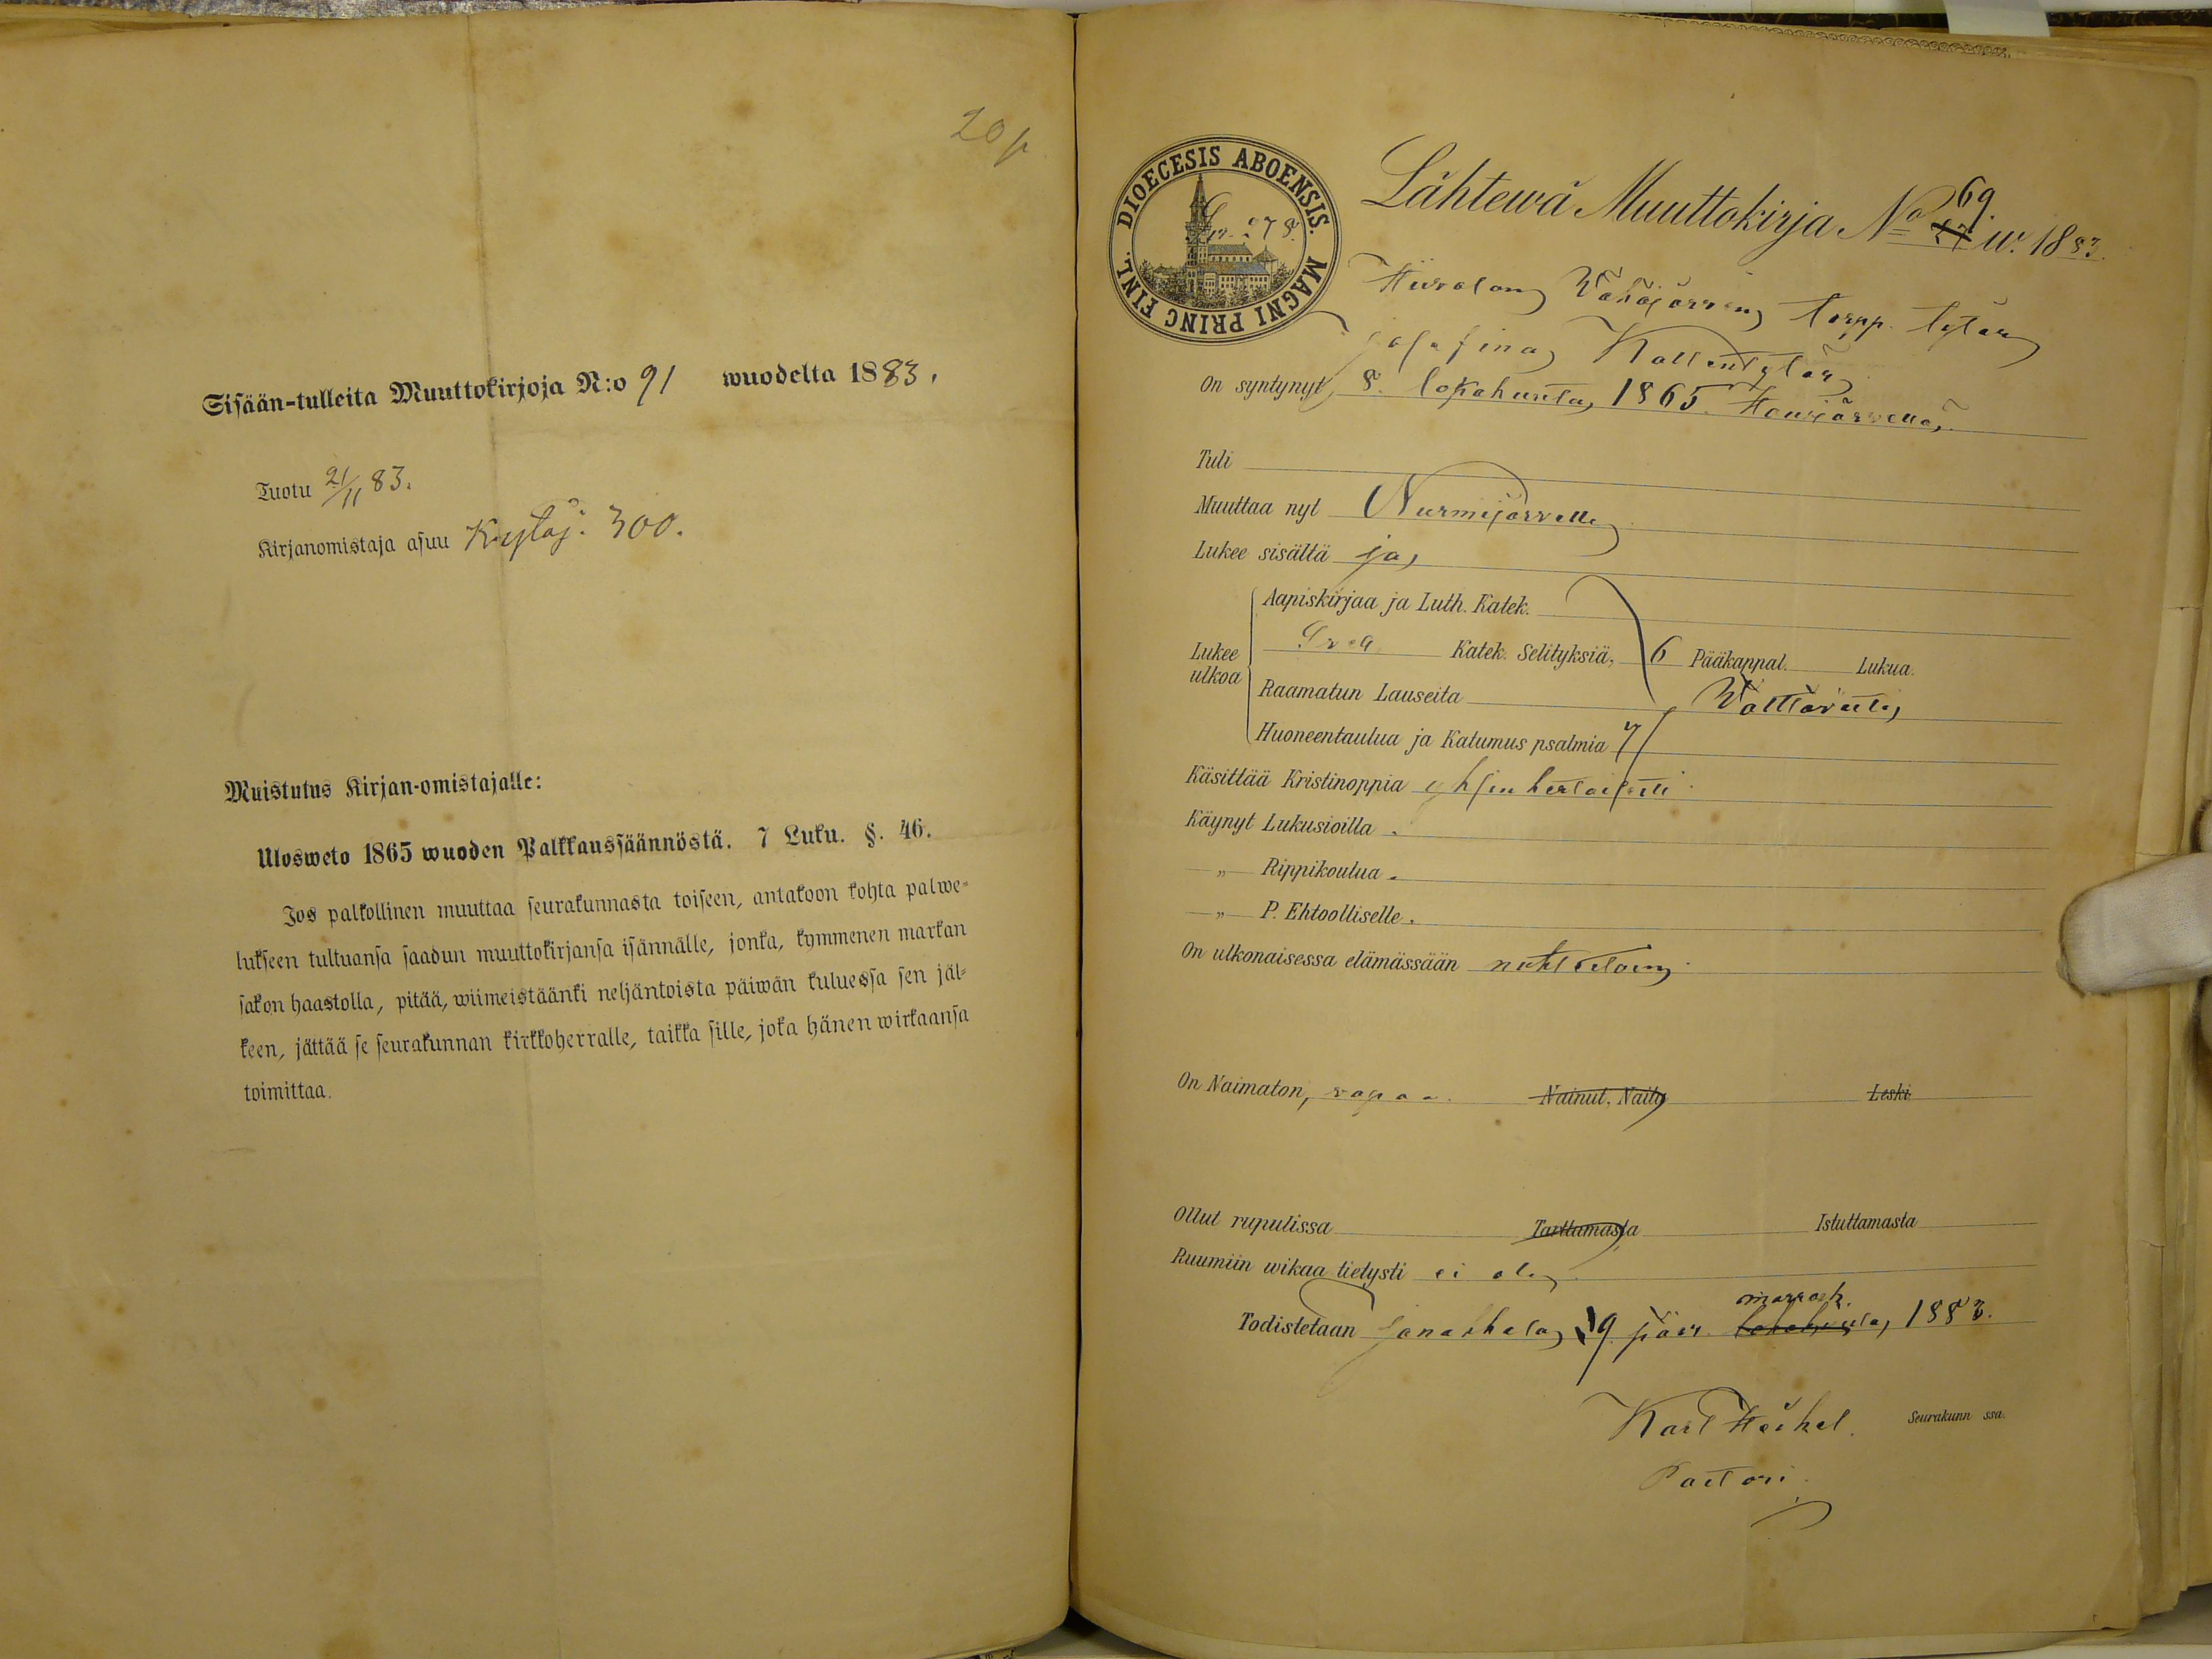 20 p
Sisään-tulleita Muuttokirjoja N:o 91 wuodelta 1883.
Tuotu 21/11 83.
Kirjanomistaja asuu Kytäj. 300.
Muistutus Kirjan-omistajalle:
Ulosweto 1865 wuoden Palkkaussäännöstä. 7 Luku. §. 46.
Jos palkollinen muuttaa seurakunnasta toiseen, antakoon kohta palwe-
lukseen tultuansa saadun muuttokirjansa isännälle, jonka, kymmenen markan
sakon haastolla, pitää, wiimeistäänki neljäntoista päiwän kuluessa sen jäl-
keen, jättää se seurakunnan kirkkoherralle, taikka sille, joka hänen wirkaansa
toimittaa.
DIOECESIS ABOENSIS. MAGNI PRINC FINL.
278.
Lähtewä Muuttokirja No 69. w. 1883.
Wähäjärven torpp. tytär
Josefina Kallentytär
On syntynyt 8. lokakuuta 1865. Hausjärvellä.
Tuli
Muuttaa nyt Nurmijärvelle
Lukee sisältä ja
Aapiskirjaa ja Luth. Katek.
Lukee ulkoa Svea Katek. Selityksiä, 6 Pääkappal. Lukua.
Raamatun Lauseita Välttäväste
Huoneentaulua ja Katumus psalmia 7
Käsittää Kristinoppia yksinkertaisesti
Käynyt Lukusioilla.
„ Rippikoulua.
„ P. Ehtoolliselle.
On ulkonaisessa elämässään nuhteetoin
On Naimaton, vapaa. Nainut, Naitu Leski
Ollut rupulissa Tarttamasta Istuttamasta
Ruumiin wikaa tietysti ei ole
marrask.
Todistetaan Janakkala 19 päiv. lokakuuta 1883.
Karl Heikel. Seurakunn ssa.
Pastori.